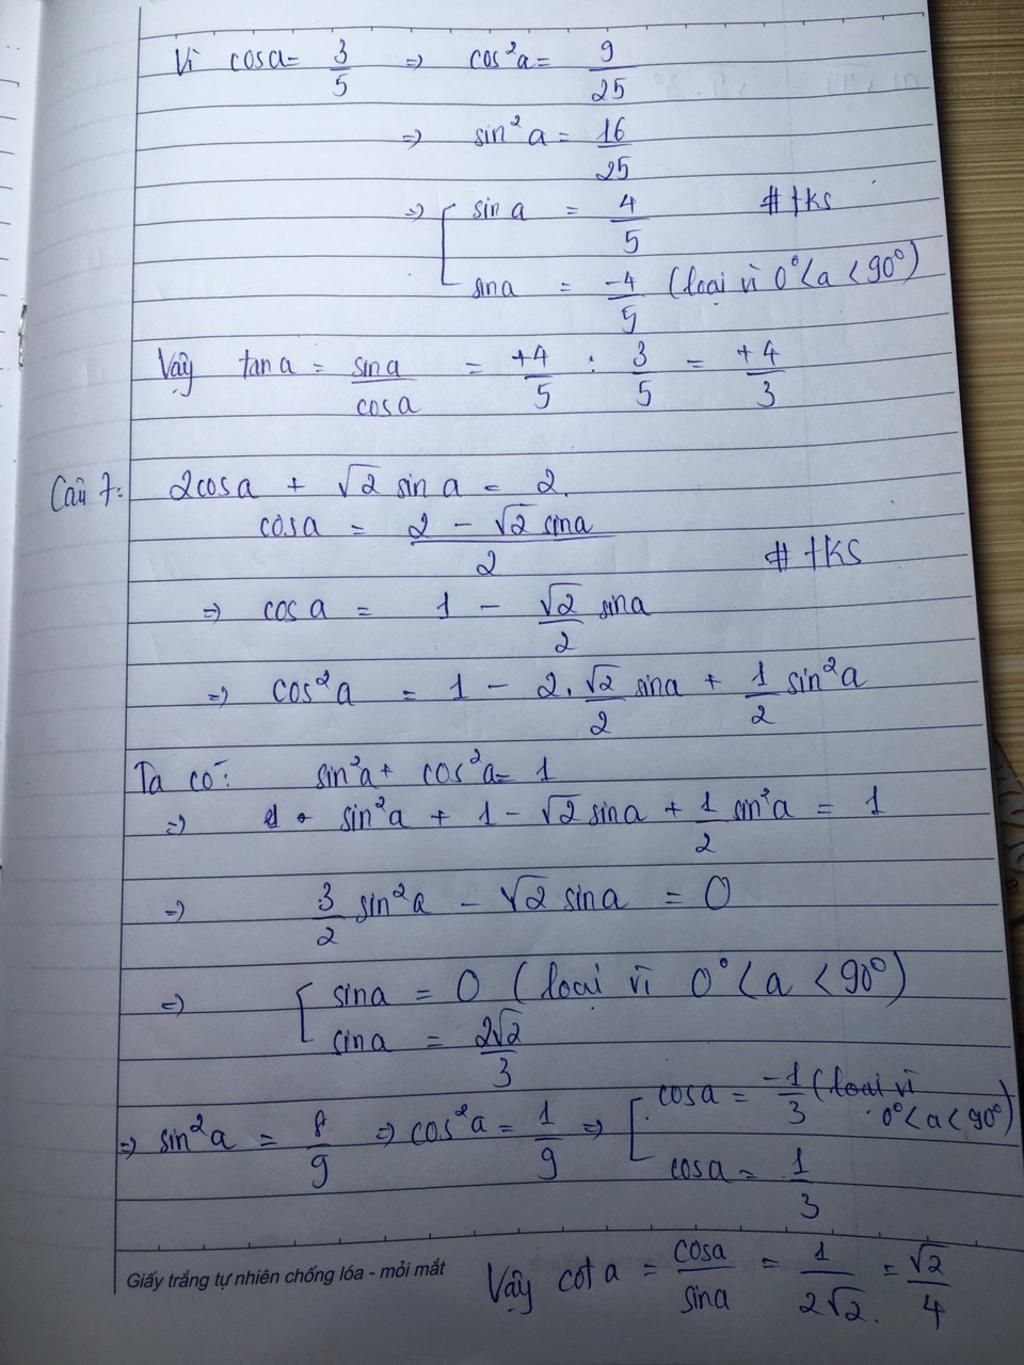 Vì cosa = 3/5 => cos²a = 9/25
=> sin²a = 16/25
=> [ sin a = 4/5 # tks
sina = -4/5 (loại vì 0° < a < 90°)
Vậy tan a = sina/cosa = +4/5 : 3/5 = +4/3
Câu 7: 2cosa + √2 sin a = 2.
cosa = (2 - √2 sina)/2
# tks
=> cosa = 1 - √2/2 sina
=> cos²a = 1 - 2.√2/2 sina + 1/2 sin²a
Ta có: sin²a + cos²a = 1
=> sin²a + 1 - √2 sina + 1/2 sin²a = 1
=> 3/2 sin²a - √2 sina = 0
=> [ sina = 0 (loại vì 0° < a < 90°)
sina = 2√2/3
=> sin²a = 8/9 => cos²a = 1/9 => [ cosa = -1/3 (loại vì 0° < a < 90°)
cosa = 1/3
Giấy trắng tự nhiên chống lóa - mỏi mắt
Vậy cot a = cosa/sina = 1/2√2. = √2/4